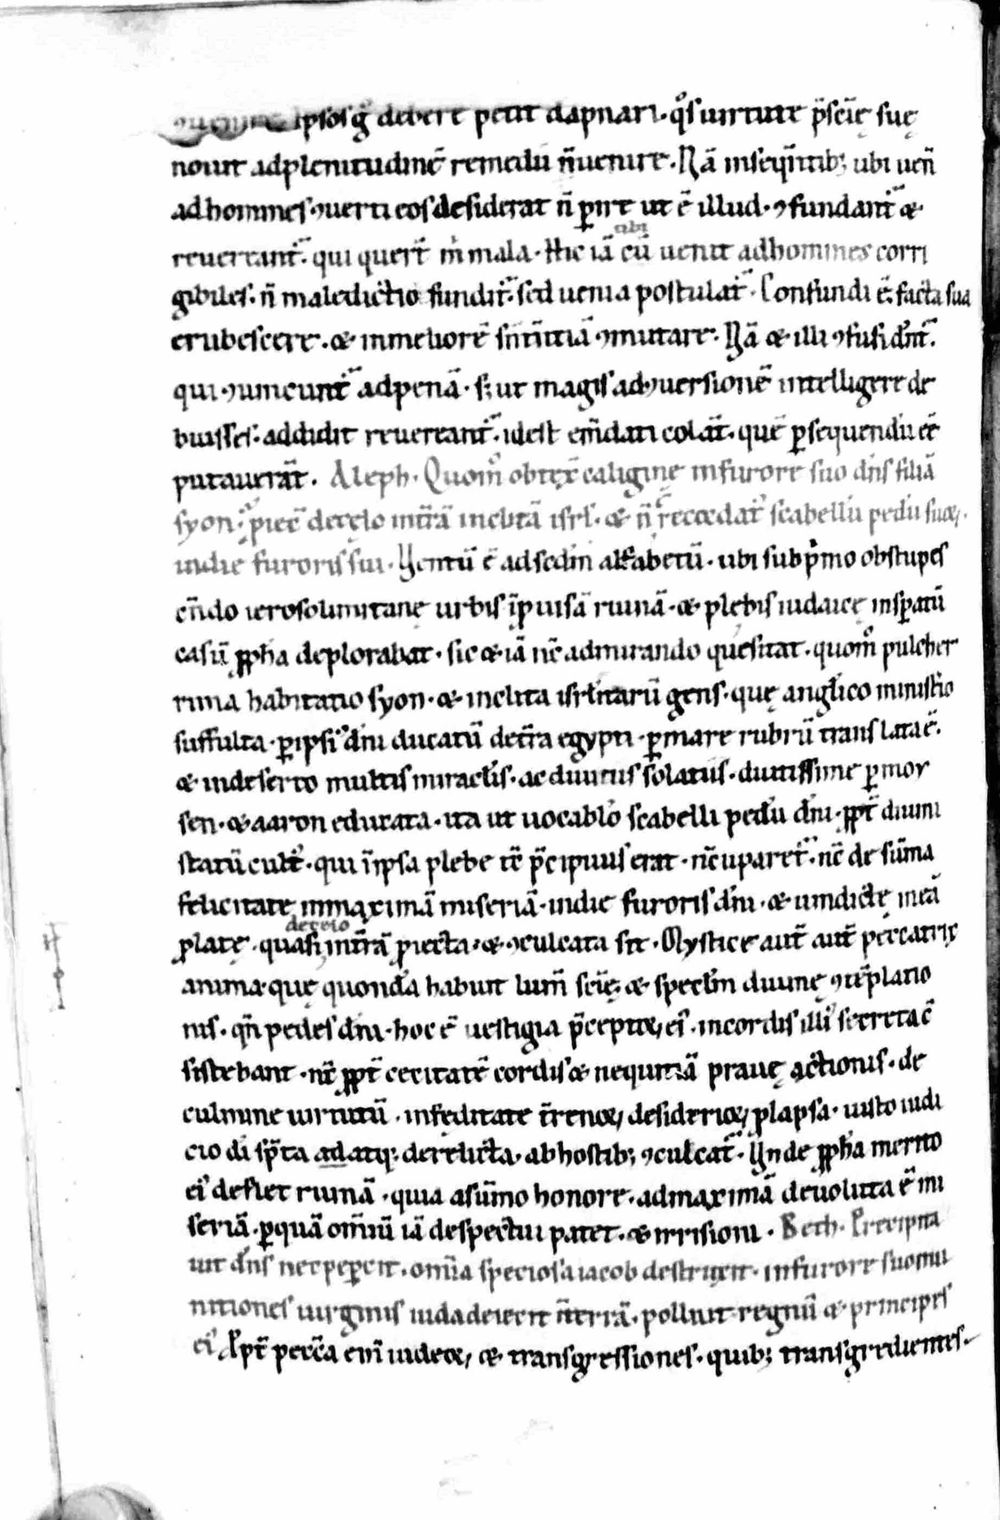 ipsosq; debere petit dapnari· q̊s uirtute p̄sciē suę
nouit adplenitudinē remedii n̄uenire· Nā inseq̄ntib; ubi uen̄
adhomines· ꝯuerti eos desiderat n̄ ꝑire ut ē illud· ꝯfundant̄ ⁊
reuereant̄· qui quer̄t m̄ mala· Hic iā cū ubi uenit adhomines corri
gibiles· n̄ maledictio fundit̄· sed uenia postulat̄· Confundi ē facta sua
erubescere· ⁊ inmeliorē sn̄tn̄tiā ꝯmutare· Nā ⁊ illi ꝯfusi dn̄t̄
qui ꝯuincunt̄ adpenā· s; ut magis adꝯuersionē intelligere de
buisses· addidit reuereant̄· idest em̄dati colāt· quē ꝑsequendū eē
putauerāt· Aleph· Quom̊ obtex̄ caliginę infurore suo dn̄s filiā
syon· ꝓiecit decęlo int̄rā inclitā isrl̄· ⁊ n̄ recordat̄ scabellū pedū suoꝝ·
indie furoris sui· Uentū ē adsedm̄ alfabetū· ubi subp̄mo obstupes
cn̄do ierosolimitane urbis īpuisā ruinā· ⁊ plebis iudaicę insꝑatū
casū ꝓpha deplorabat· sic ⁊ iā nc̄ admirando quesitat· quom̊ pulcher
rima habitatio syon· ⁊ inclita isrl̄itarū gens· quę angl̄ico ministio
suffulta· ꝑipsi' dn̄i ducatū det̄ra egypti· ꝑmare rubrū translataē·
⁊ indeserto multis miracl̄is· ac diuinis solatiis· diutissime ꝑmoy
sen· ⁊ aaron educata· ita ut uocablo scabelli pedū dn̄i· ꝓpt̄ diuini
statū cult'· qui īipsa plebe tc̄ p̄cipuus erat· nc̄upāret̄· nc̄ de sūma
felicitate inmaximā miseriā· indie furoris dn̄i· ⁊ uindictę meā
ꝓlatę· quasi decęlo int̄rā ꝓiecta· ⁊ ꝯculcata sit· Mystice aut̄ aut̄ peccatrix
anima· quę quondā habuit lum̄ sciē· ⁊ speclm̄ diuinę ꝯtēplatio
nis· q̄n pedes dn̄i· hoc ē uestigia p̄ceptoꝝ ei'· incordis illi' secretac̄
sistebant· nc̄ ꝓpt̄ cecitatē cordis ⁊ nequitiā prauę actionis· de
culmine uirtutū· infeditate t̄renoꝝ desiderioꝝ ꝓlapsa· iusto iudi
cio di sp̄ta adatq; derelicta· abhostib; ꝯculcat̄· Unde ꝓpha merito
ei' deflet ruinā· quia asūmo honore· admaximā deuoluta ē mi
seriā· ꝑquā om̄iū iā despectui patet· ⁊ irrisioni· Beth· Precipita
uit dn̄s necpeꝑcit· om̄ia speciosa iacob destruxit· infurore suo mu
nitiones uirginis iuda deiecit īterrā· polluit regnū ⁊ principes
ei' Ꝓpt̄ pecc̄a eni iudeoꝝ ⁊ transgressiones· quib; transgredientes·